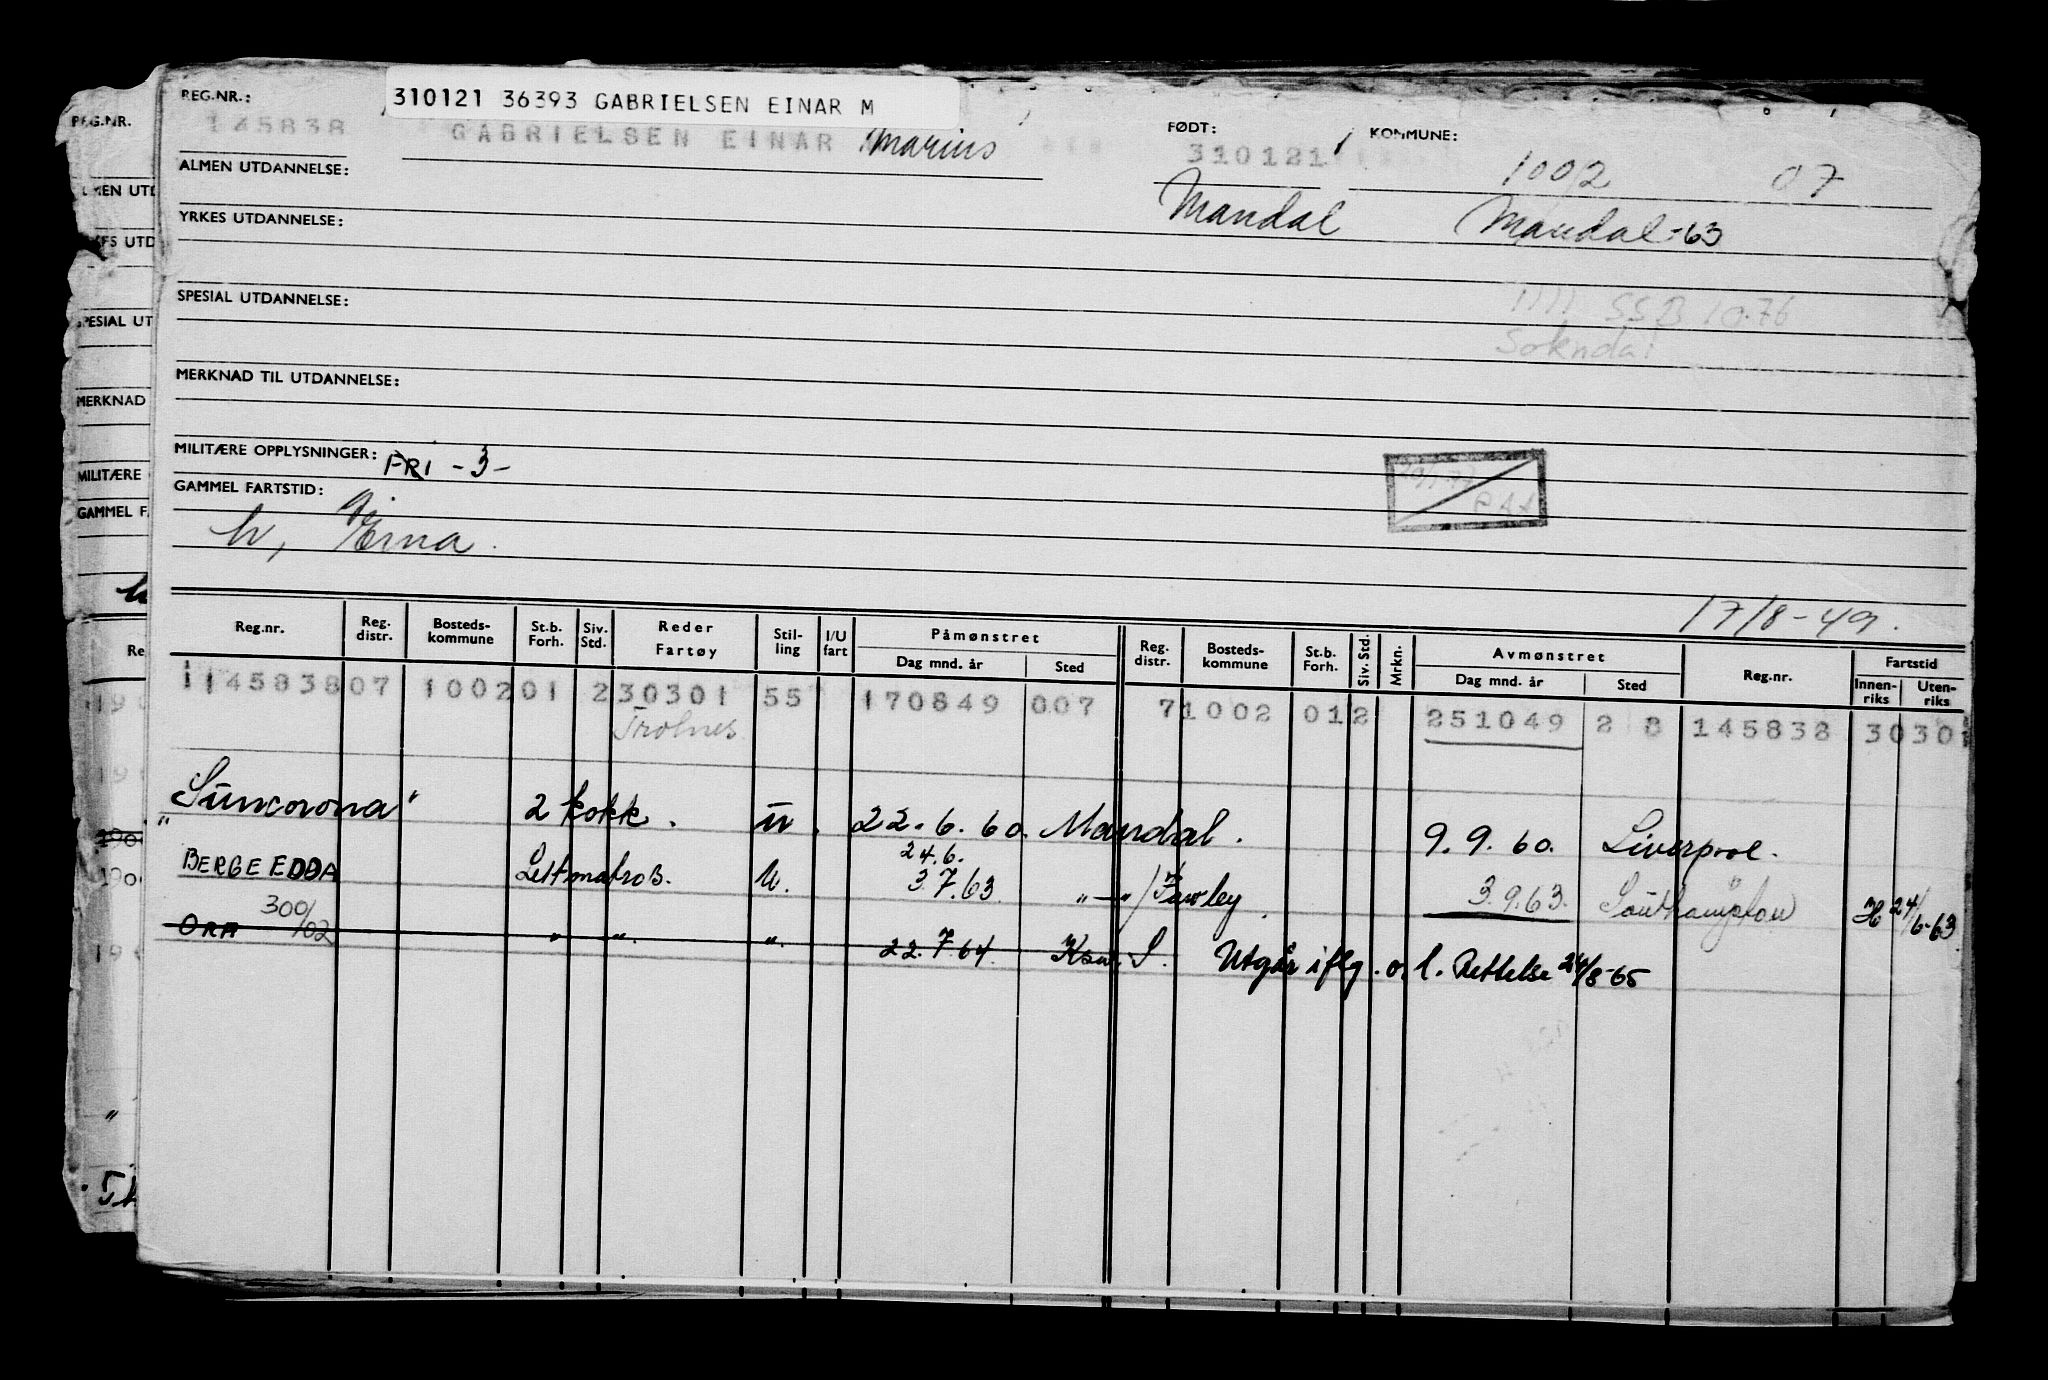 310121 36393 GABRIELSEN EINAR M
REG.NR.:
145838
GABRIELSEN EINAR Marius
FØDT:
310121
KOMMUNE:
1002 07
ALMEN UTDANNELSE:
Mandal Mandal-63
YRKES UTDANNELSE:
SPESIAL UTDANNELSE:
1111 SSB 10.76
Sokndal
MERKNAD TIL UTDANNELSE:
MILITÆRE OPPLYSNINGER: FRI -3-
GAMMEL FARTSTID:
h, Gj. Erna.
17/8-49.
Reg.nr. Reg. distr. Bosteds- kommune St.b. Forh. Siv. Std. Reder Fartøy Stil- ling I/U fart Påmønstret Dag mnd. år Sted Reg. distr. Bosteds- kommune St.b. Forh. Siv. Std. Mrkn. Avmønstret Dag mnd. år Sted Reg.nr. Fartstid Innen- riks Uten- riks
1145838 07 1002 01 2 30301 55 170849 007 7 1002 01 2 251049 2 8 145838 30301
Trolnes
"Suncorona" 2 kokk. u. 22.6.60. Mandal. 9.9.60. Liverpool.
24.6.
BERGE EDDA Lettmatros. u. 3.7.63 "—"/Fawley. 3.9.63. Southampton H 24/6-63
300/02
ORA " ". ". 22.7.64. Ksu. S. Utgår iflg. o. l. Rettelse 24/8-65